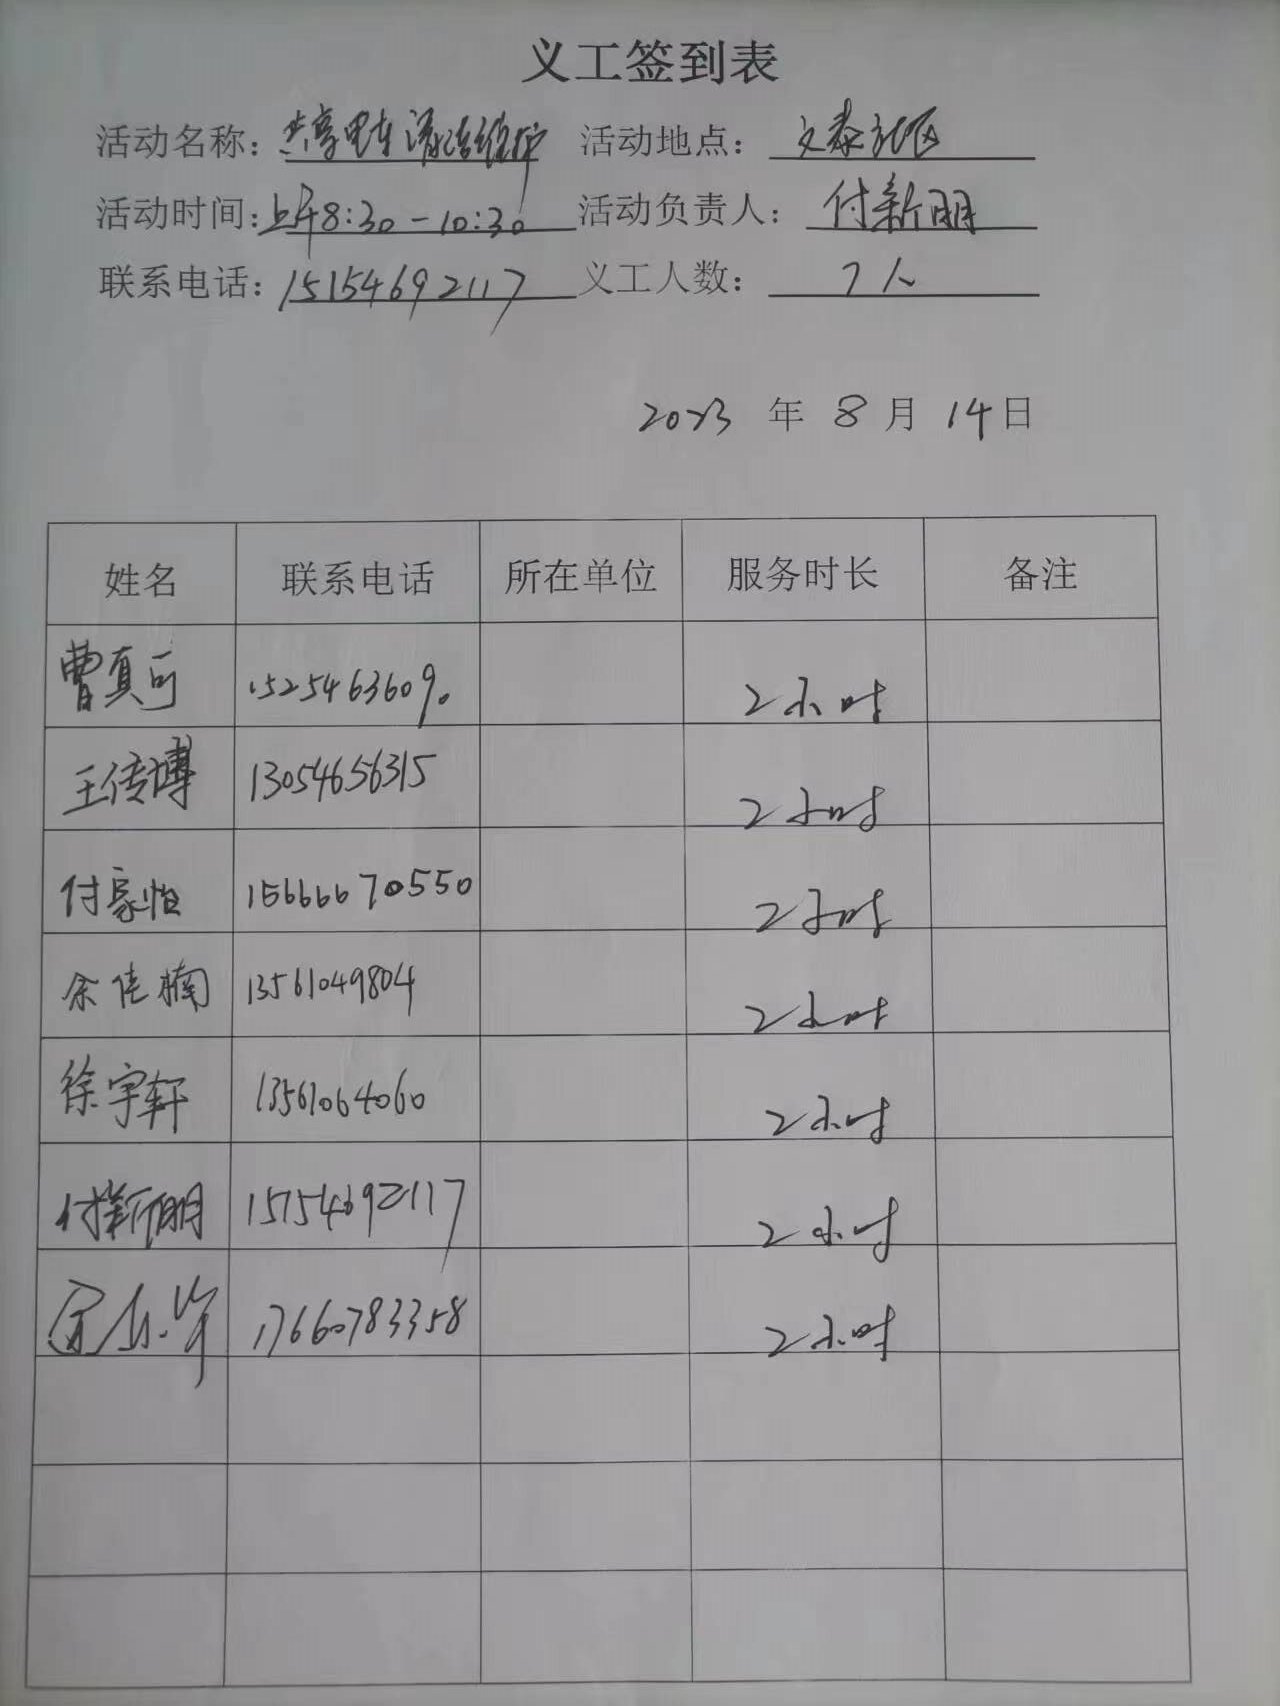 义工签到表
活动名称：共享电车清洁维护 活动地点：文泰社区
活动时间：上午8:30-10:30 活动负责人：付新明
联系电话：15154692117 义工人数：7人
2023 年 8 月 14日
姓名 联系电话 所在单位 服务时长 备注
曹真可 15254636090 2小时
王传博 13054656315 2小时
付豪怡 15666670550 2小时
余佳楠 13561049804 2小时
徐宇轩 13561064060 2小时
付新明 15154692117 2小时
17660783358 2小时